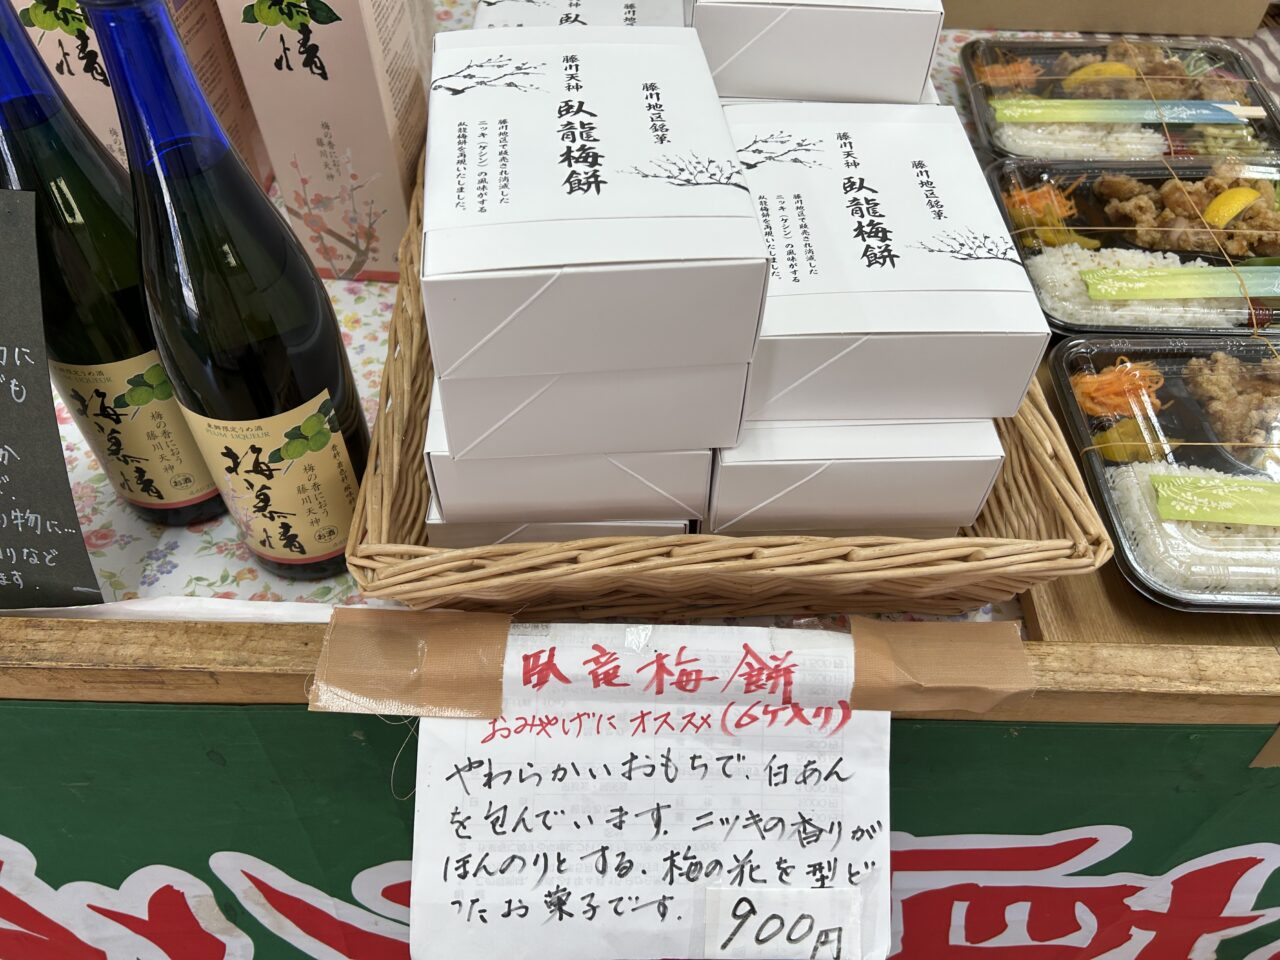 慕情
梅の香におう
藤川天神
慕情
藤川地区銘菓
藤川天神
臥龍梅餅
藤川地区で販売され消滅した
ニッキ(ケシン)の風味がする
臥龍梅餅を再現いたしました。
藤川地区銘菓
藤川天神
臥龍梅餅
藤川地区で販売され消滅した
ニッキ(ケシン)の風味がする
臥龍梅餅を再現いたしました。
PLUM LIQUEUR
梅慕情
梅の香におう
藤川天神
お酒
東郷限定うめ酒
PLUM LIQUEUR
梅慕情
梅の香におう
藤川天神
お酒
り物に…
りなど
ます.
臥竜梅餅
おみやげにオススメ(6ケ入り)
やわらかいおもちで、白あん
を包んでいます。ニッキの香りが
ほんのりとする、梅の花を型ど
ったお菓子です.
900円